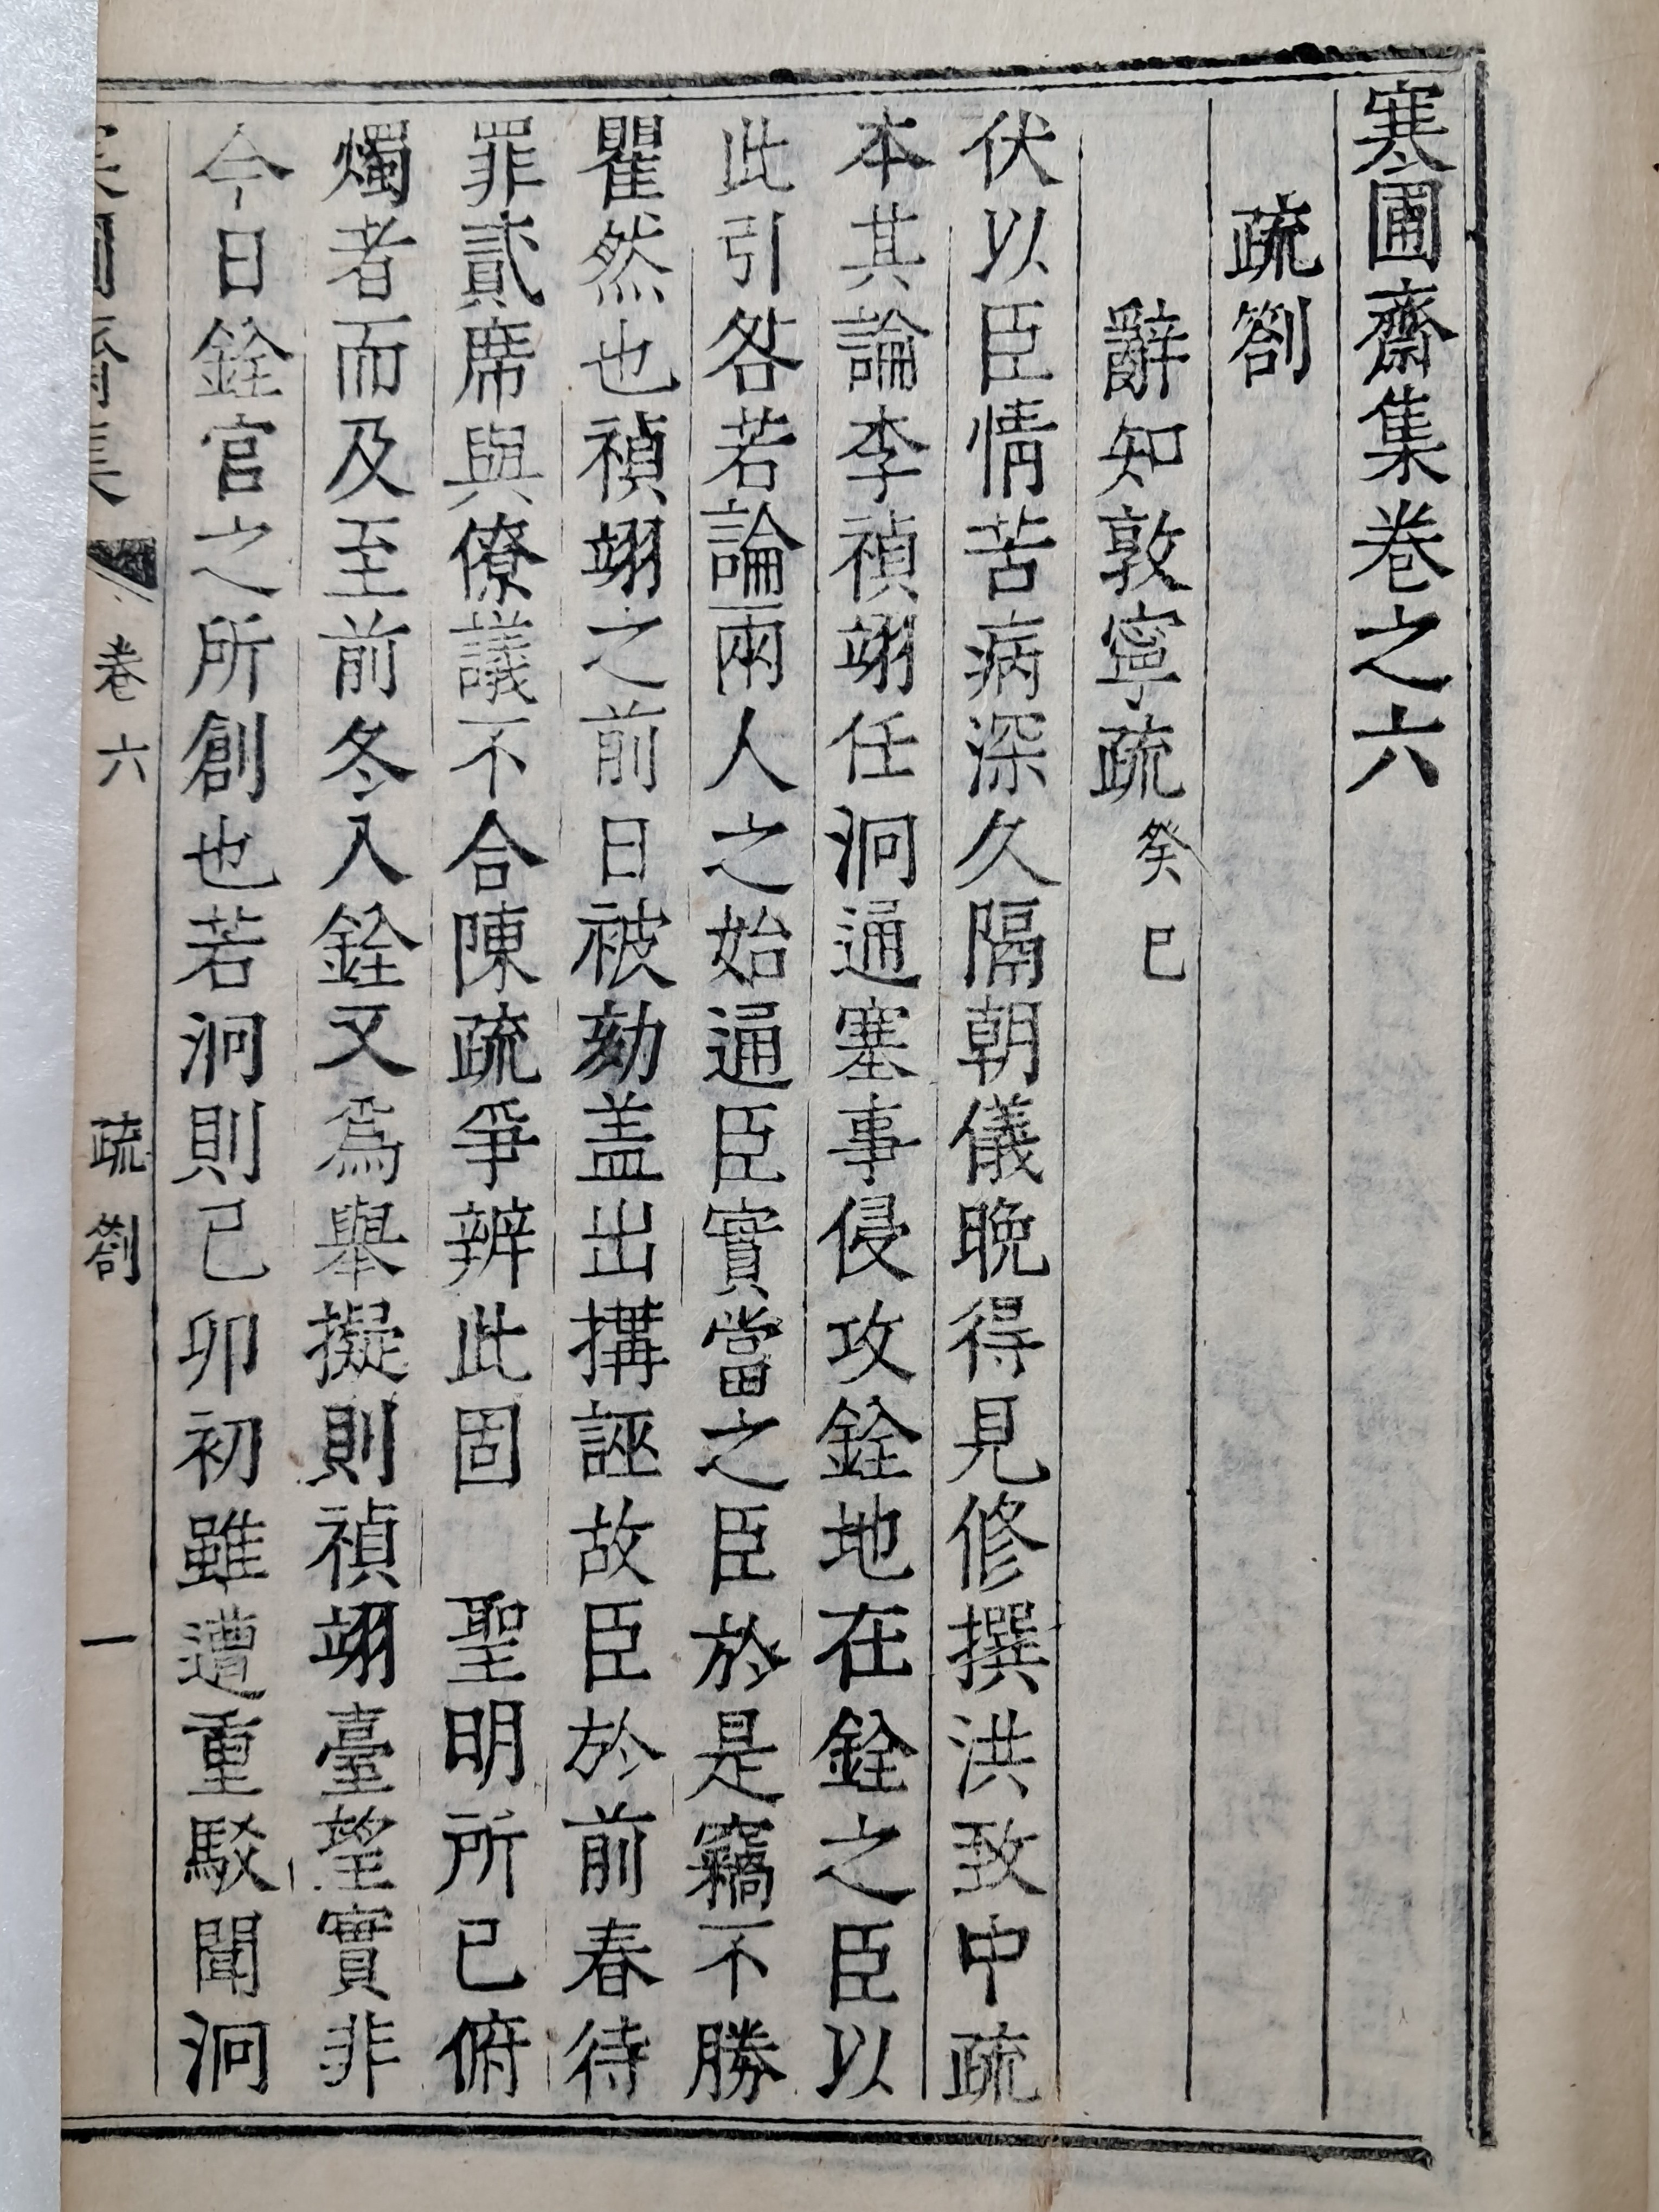 寒圃齋集卷之六
疏劄
辭知敦寧疏 癸巳
伏以臣情苦病深久隔朝儀晚得見修撰洪致中疏
本其論李禎翊任泂通塞事侵攻銓地在銓之臣以
此引咎若論兩人之始通臣實當之臣於是竊不勝
瞿然也禎翊之前日被劾盖出搆誣故臣於前春待
罪貳席與僚議不合陳疏爭辨此固 聖明所已俯
燭者而及至前冬入銓又爲擧擬則禎翊臺望實非
今日銓官之所創也若泂則己卯初雖遭重駁聞泂
寒圃齋集 卷六 疏劄 一